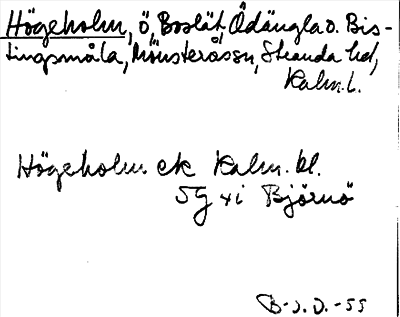 Högeholm, ö, Boslät, Ödängla o. Bis-
tingsmåla, Mönsterås sn, Stranda hd,
Kalm. l.
Högeholm ek Kalm. bl.
5g xi Björnö
B-s. D. -55